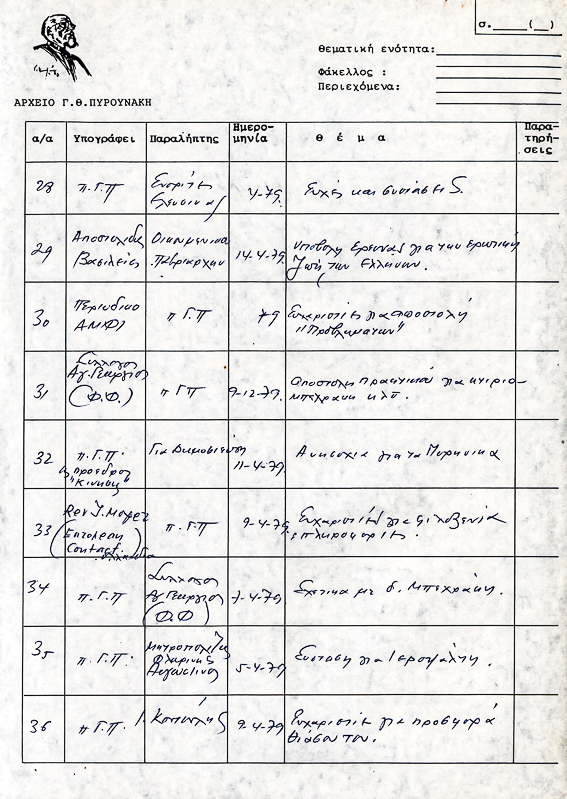 σ.____(__)
Θεματική ενότητα:
Φάκελλος :
Περιεχόμενα:
ΑΡΧΕΙΟ Γ.Θ.ΠΥΡΟΥΝΑΚΗ
α/α Υπογράφει Παραλήπτης Ημερο-μηνία Θ έ μ α Παρα-τηρή-σεις
28 π.Γ.Π Ενορίτες Ελευσίνας 4-79. Ευχές και συστάσεις.
29 Αποστολίδης Βασίλειος Οικουμενικό Πατριαρχείο 14.4.79. Υποβολή Ερευνας για την ερωτική
ζωή των Ελλήνων.
30 Περιοδικό ΑΜΦΙ π Γ.Π 79 Ευχαριστίες για αποστολή
"Προβλημάτων"
31 Σύλλογος
Αγ. Γεώργιος
(Φ.Φ.) π ΓΠ 9-12-79. αποστολή πρακτικού για κτίριο
Μπεχράκη κλπ.
32 π.Γ.Π.
ως πρόεδρος
"Κίνησης" Για Δημοσίευση 11-4-79. Ανησυχία για τα Πυρηνικά
33 Rev J. Mayer
(European
Contact) π.Γ.Π. 9-4-79. Ευχαριστίες για φιλοξενία
34 π.Γ.Π Σύλλογος
Αγ Γεώργιος
(Φ.Φ) -4-79. Σχετικά με δ. Μπεχράκη.
35 π.Γ.Π. Μητροπολίτης
Φλωρίνης
Αυγουστίνος 5-4-79 Σύσταση για Ιεροψάλτη.
36 π Γ.Π. 9-4-79 Ευχαριστίες για προσφορά
θιάσου του.